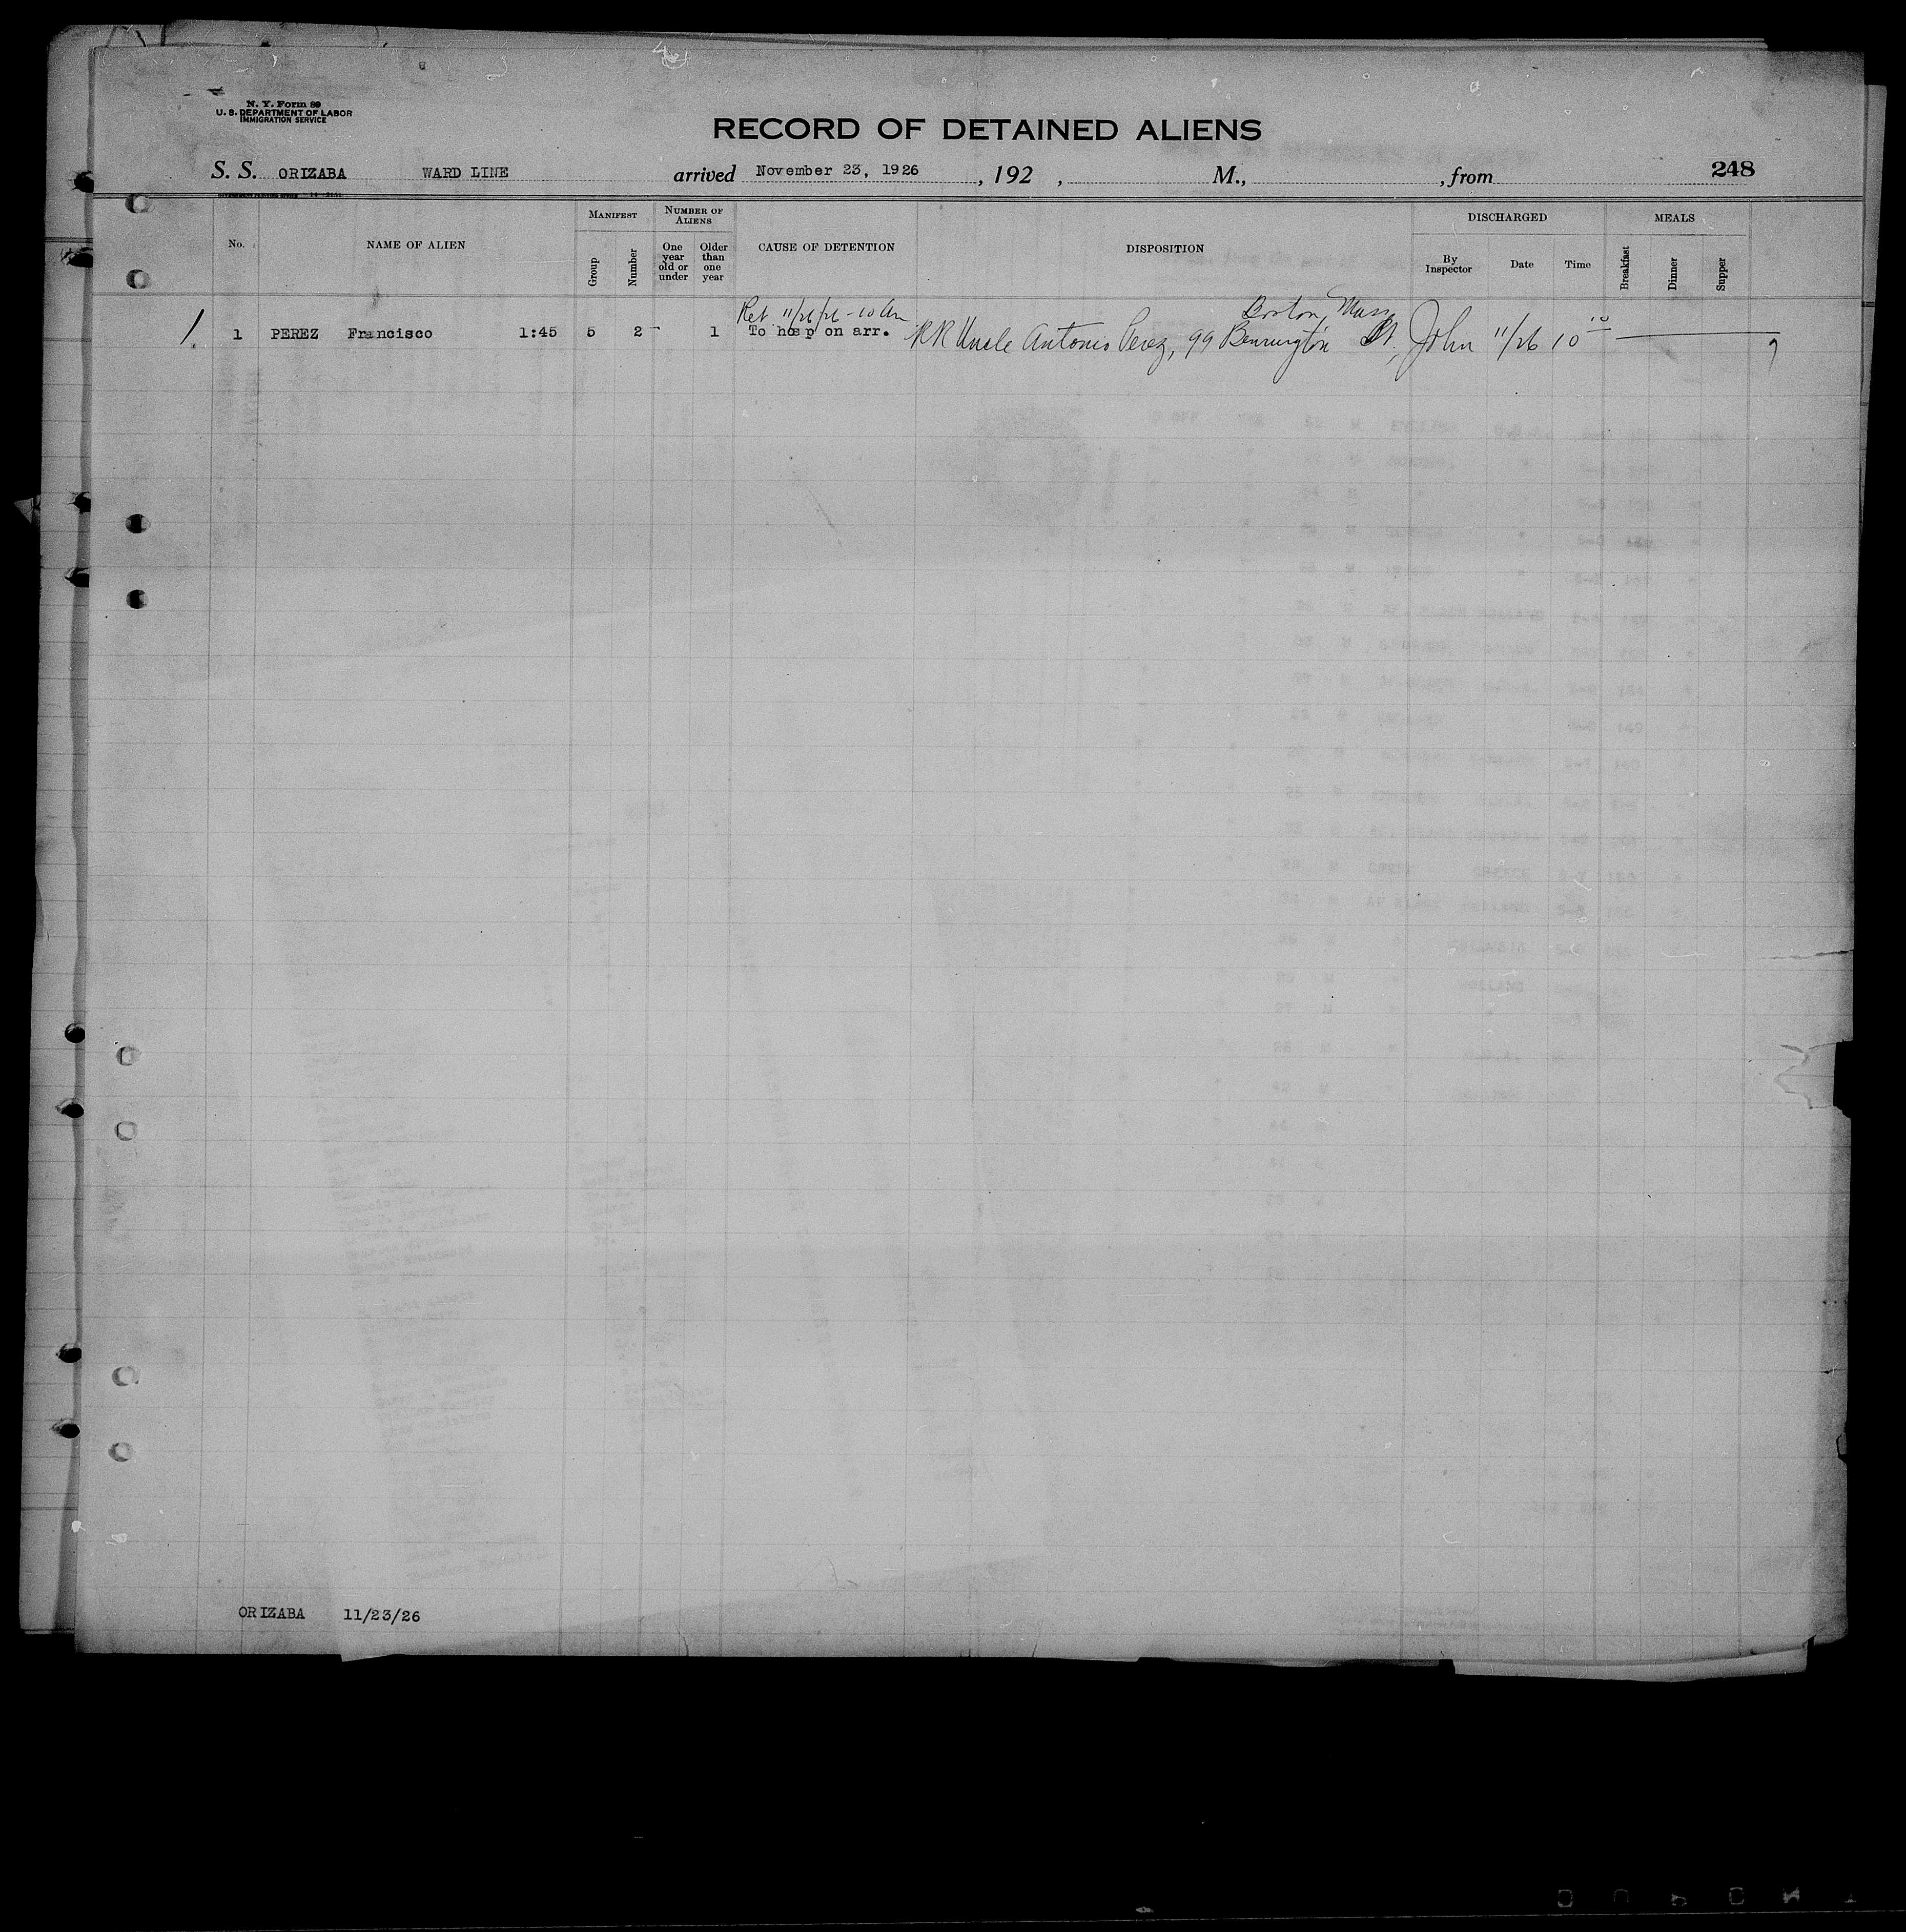 N. Y. Form 89
U. S. DEPARTMENT OF LABOR
IMMIGRATION SERVICE
RECORD OF DETAINED ALIENS
248
S. S. ORIZABA WARD LINE arrived November 23, 1926, 192 , M., , from
No. NAME OF ALIEN MANIFEST NUMBER OF ALIENS CAUSE OF DETENTION DISPOSITION DISCHARGED MEALS
Group Number One year old or under Older than one year By Inspector Date Time Breakfast Dinner Supper
Ret 11/26/26 - 10 Am Boston, Mass
1 1 PEREZ Francisco 1:45 5 2 1 To hosp on arr. RR Uncle Antonio Perez, 99 Bennington St, John 11/26 10 10
ORIZABA 11/23/26